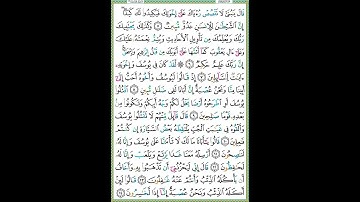 قَالَ يَٰبُنَيَّ لَا تَقْصُصْ رُءْيَاكَ عَلَىٰٓ إِخْوَتِكَ فَيَكِيدُوا۟ لَكَ كَيْدًا
إِنَّ ٱلشَّيْطَٰنَ لِلْإِنسَٰنِ عَدُوٌّ مُّبِينٌ ٥ وَكَذَٰلِكَ يَجْتَبِيكَ
رَبُّكَ وَيُعَلِّمُكَ مِن تَأْوِيلِ ٱلْأَحَادِيثِ وَيُتِمُّ نِعْمَتَهُۥ عَلَيْكَ
وَعَلَىٰٓ ءَالِ يَعْقُوبَ كَمَآ أَتَمَّهَا عَلَىٰٓ أَبَوَيْكَ مِن قَبْلُ إِبْرَٰهِيمَ وَإِسْحَٰقَ
إِنَّ رَبَّكَ عَلِيمٌ حَكِيمٌ ٦ ۞ لَّقَدْ كَانَ فِي يُوسُفَ وَإِخْوَتِهِۦٓ
ءَايَٰتٌ لِّلسَّآئِلِينَ ٧ إِذْ قَالُوا۟ لَيُوسُفُ وَأَخُوهُ أَحَبُّ إِلَىٰٓ
أَبِينَا مِنَّا وَنَحْنُ عُصْبَةٌ إِنَّ أَبَانَا لَفِي ضَلَٰلٍ مُّبِينٍ ٨ ٱقْتُلُوا۟
يُوسُفَ أَوِ ٱطْرَحُوهُ أَرْضًا يَخْلُ لَكُمْ وَجْهُ أَبِيكُمْ وَتَكُونُوا۟ مِنۢ
بَعْدِهِۦ قَوْمًا صَٰلِحِينَ ٩ قَالَ قَآئِلٌ مِّنْهُمْ لَا تَقْتُلُوا۟ يُوسُفَ
وَأَلْقُوهُ فِي غَيَٰبَتِ ٱلْجُبِّ يَلْتَقِطْهُ بَعْضُ ٱلسَّيَّارَةِ إِن كُنتُمْ
فَٰعِلِينَ ١٠ قَالُوا۟ يَٰٓأَبَانَا مَا لَكَ لَا تَأْمَ۫نَّا عَلَىٰ يُوسُفَ وَإِنَّا لَهُۥ
لَنَٰصِحُونَ ١١ أَرْسِلْهُ مَعَنَا غَدًا يَرْتَعْ وَيَلْعَبْ وَإِنَّا لَهُۥ
لَحَٰفِظُونَ ١٢ قَالَ إِنِّي لَيَحْزُنُنِيٓ أَن تَذْهَبُوا۟ بِهِۦ وَأَخَافُ
أَن يَأْكُلَهُ ٱلذِّئْبُ وَأَنتُمْ عَنْهُ غَٰفِلُونَ ١٣ قَالُوا۟ لَئِنْ
أَكَلَهُ ٱلذِّئْبُ وَنَحْنُ عُصْبَةٌ إِنَّآ إِذًا لَّخَٰسِرُونَ ١٤